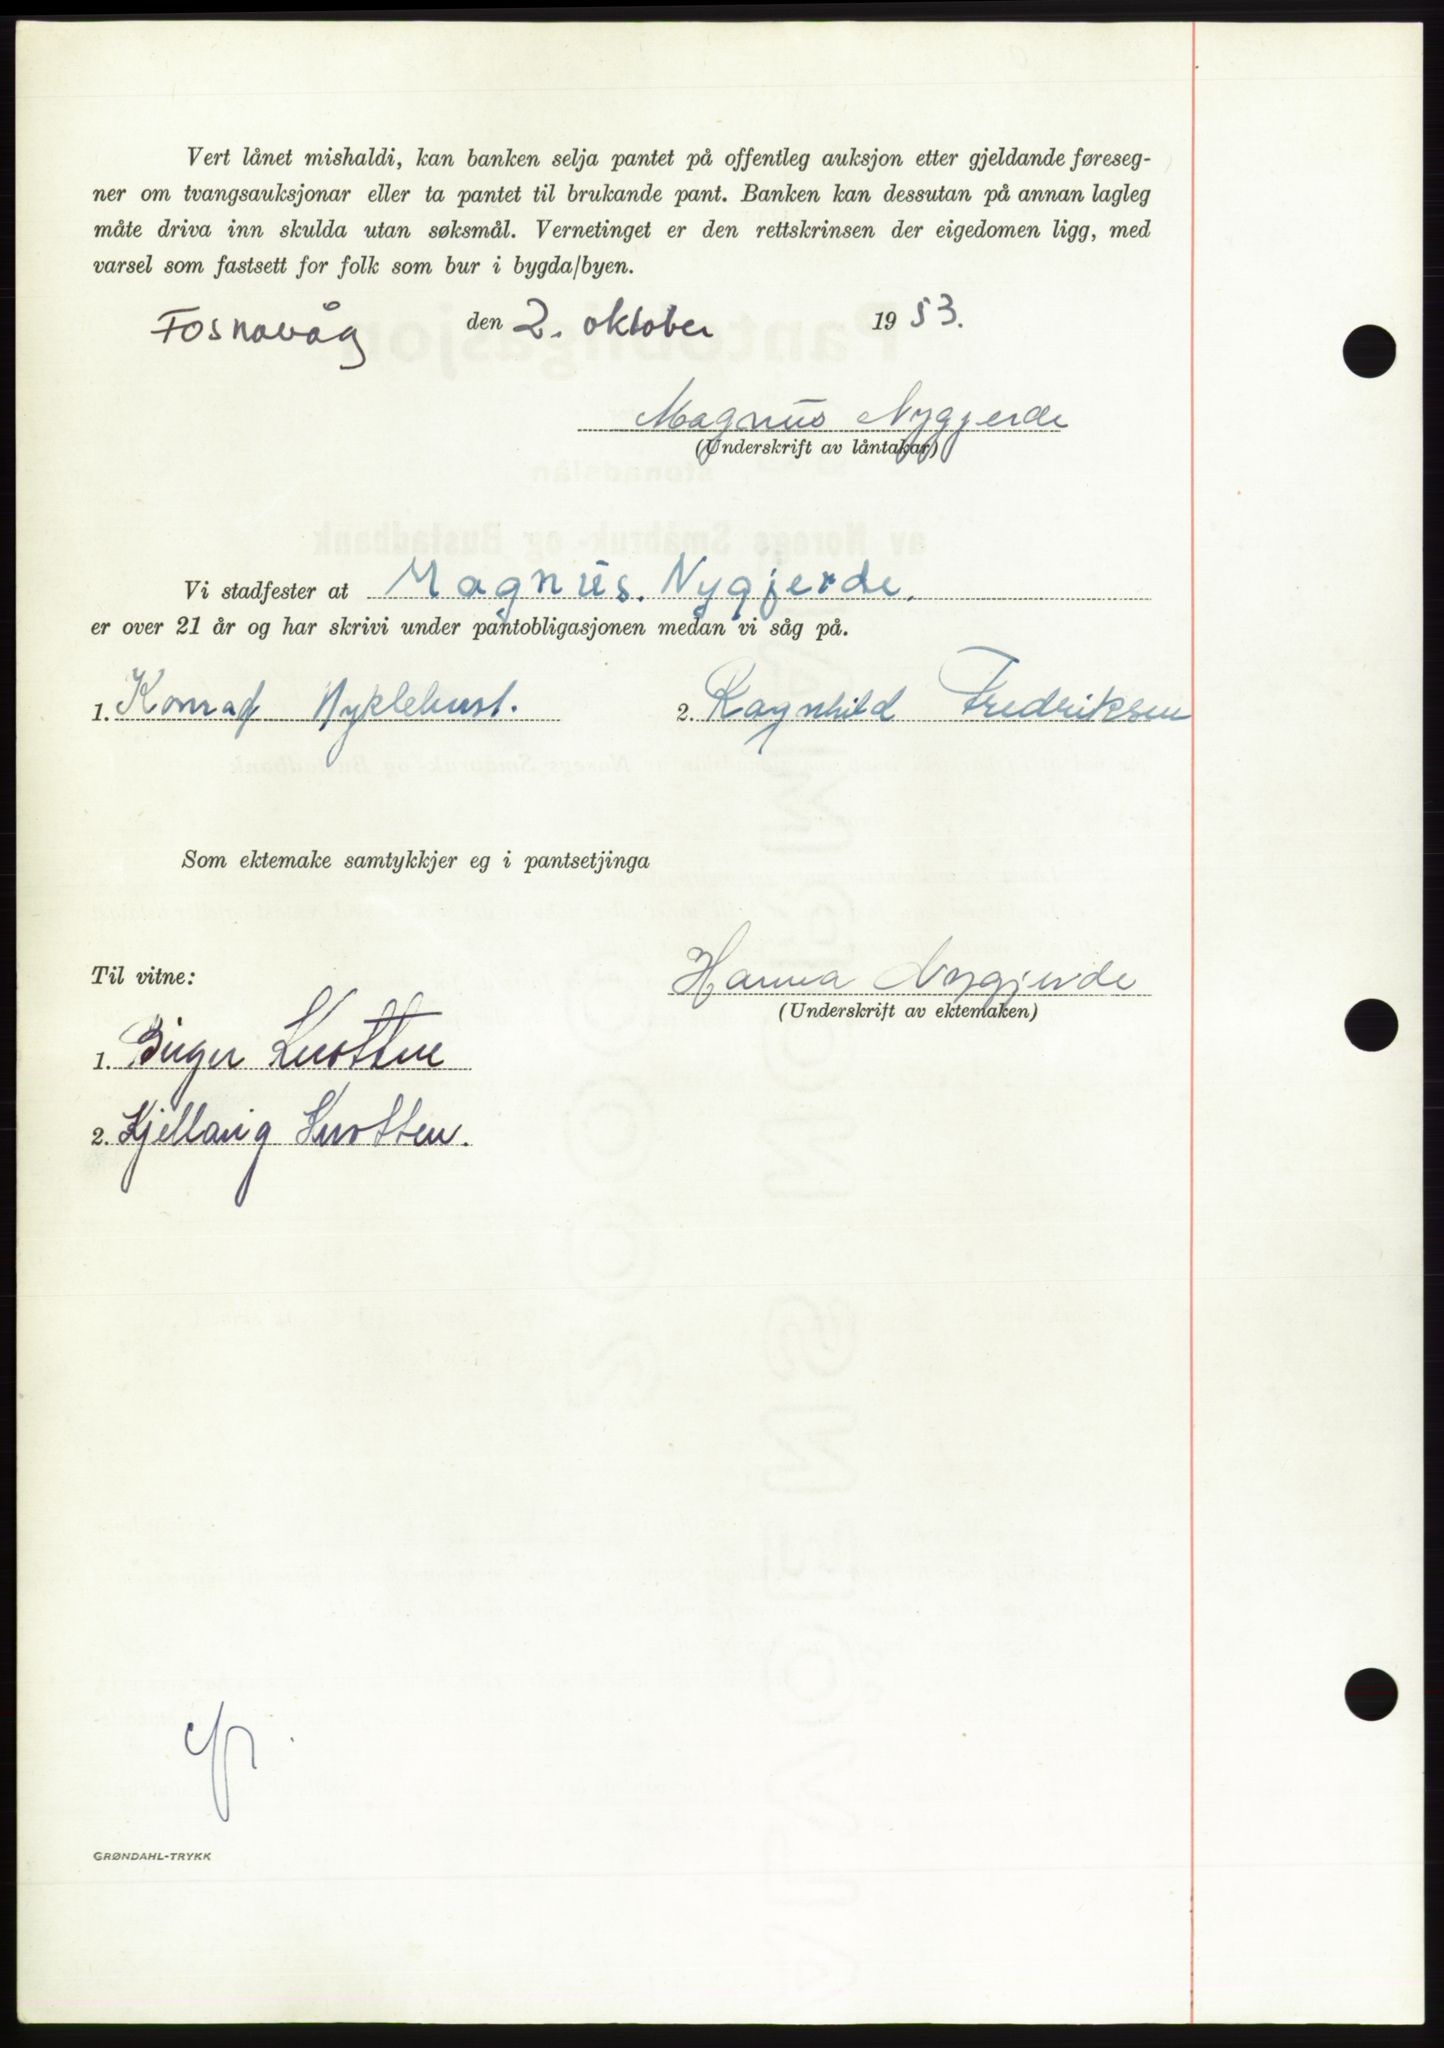 Vert lånet mishaldi, kan banken selja pantet på offentleg auksjon etter gjeldande føreseg-
ner om tvangsauksjonar eller ta pantet til brukande pant. Banken kan dessutan på annan lagleg
måte driva inn skulda utan søksmål. Vernetinget er den rettskrinsen der eigedomen ligg, med
varsel som fastsett for folk som bur i bygda/byen.
Fosnavåg den 2. oktober 1953.
Magnus Nygjerde
(Underskrift av låntakar)
Vi stadfester at Magnus. Nygjerde.
er over 21 år og har skrivi under pantobligasjonen medan vi såg på.
1. Konrad Myklebust. 2. Ragnhild Fredriksen
Som ektemake samtykkjer eg i pantsetjinga
Til vitne: Hanna Nygjerde
(Underskrift av ektemaken)
1. Birger Knotten
2. Kjellaug Knotten.
GRØNDAHL-TRYKK